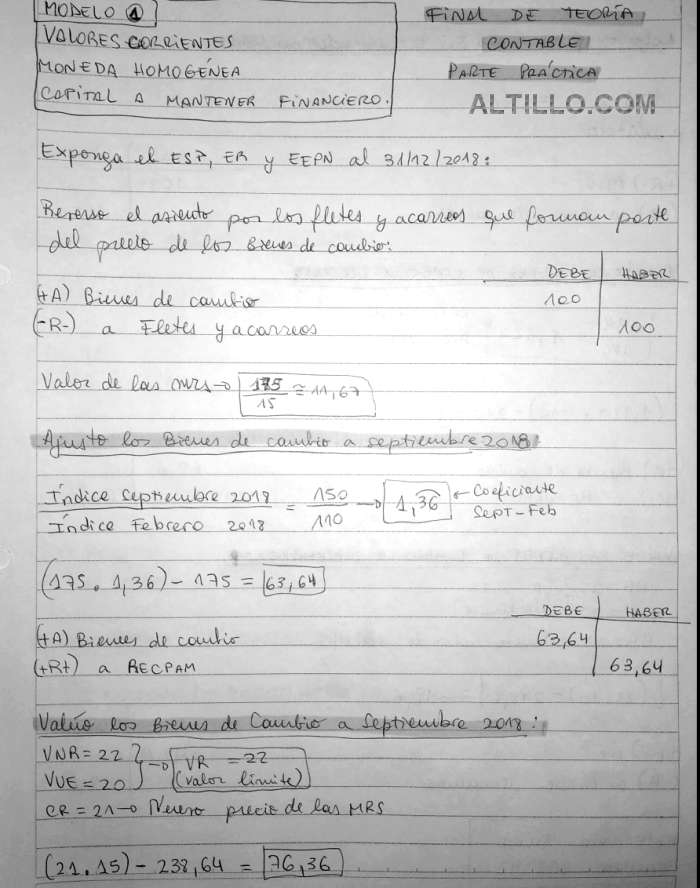 MODELO ①
VALORES CORRIENTES
MONEDA HOMOGÉNEA
CAPITAL A MANTENER FINANCIERO.
FINAL DE TEORÍA
CONTABLE
PARTE PRÁCTICA
ALTILLO.COM
Exponga el ESP, ER y EEPN al 31/12/2018:
Reverso el asiento por los fletes y acarreos que forman parte
del precio de los Bienes de cambio:
DEBE HABER
(+A) Bienes de cambio 100
(-R-) a Fletes y acarreos 100
Valor de las mrs → 175/15 ≅ 11,67
Ajusto los Bienes de cambio a septiembre 2018:
Índice Septiembre 2018 / Índice Febrero 2018 = 150/110 → 1,36 ← Coeficiente
Sept-Feb
(175 . 1,36) - 175 = 63,64
DEBE HABER
(+A) Bienes de cambio 63,64
(+R+) a RECPAM 63,64
Valúo los Bienes de Cambio a Septiembre 2018:
VNR = 22 } → VR = 22
VUE = 20 (valor límite)
CR = 21 → Nuevo precio de las MRS
(21.15) - 238,64 = 76,36